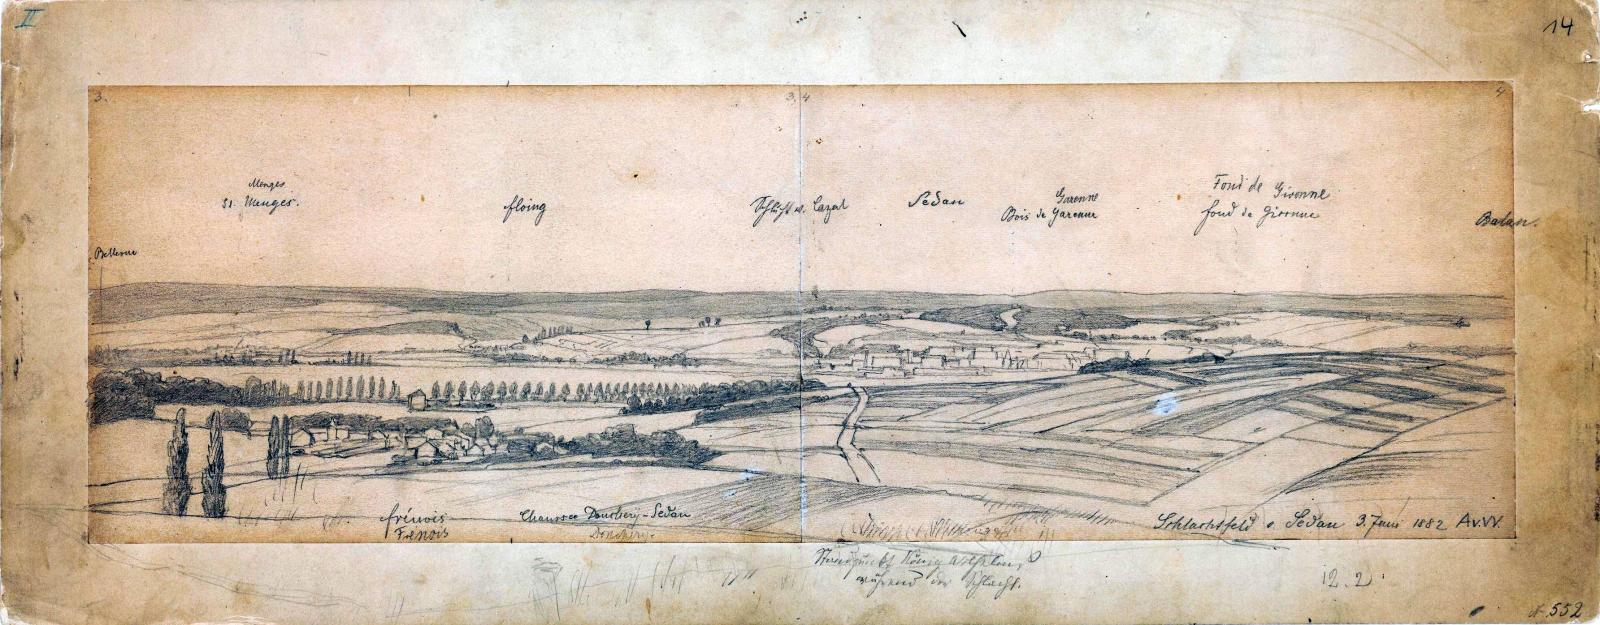 II
14
3.
3, 4
4
Menges
St. Menges.
floing
Schlucht v. Cazal
Sedan
Garenne
Bois de Garenne
Fond de Givonne
fond de Givonne
Balan.
Bellevue
frénois
Frénois
Chaussee Donchery-Sedan
Donchery.
Schlachtfeld v. Sedan 3. Juni 1882 A.v.W.
Standpunkt König Wilhelms
während der Schlacht.
12.2
N. 552